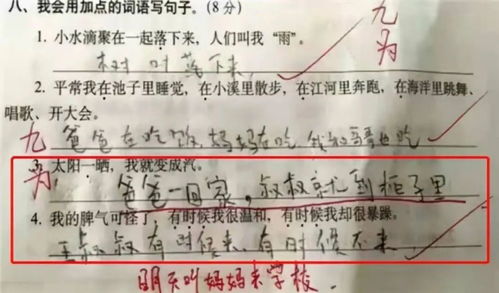 八、我会用加点的词语写句子。(8分)
1. 小水滴聚在一起落下来,人们叫我“雨”。
树叶落下来
2. 平常我在池子里睡觉,在小溪里散步,在江河里奔跑,在海洋里跳舞、
唱歌、开大会。
爸爸在吃饭,妈妈在吃,我和哥哥也吃
3. 太阳一晒,我就变成汽。
爸爸一回家,叔叔就到柜子里
4. 我的脾气可怪了,有时候我很温和,有时候我却很暴躁。
王叔叔有时候来,有时候不来
明天叫妈妈来学校.